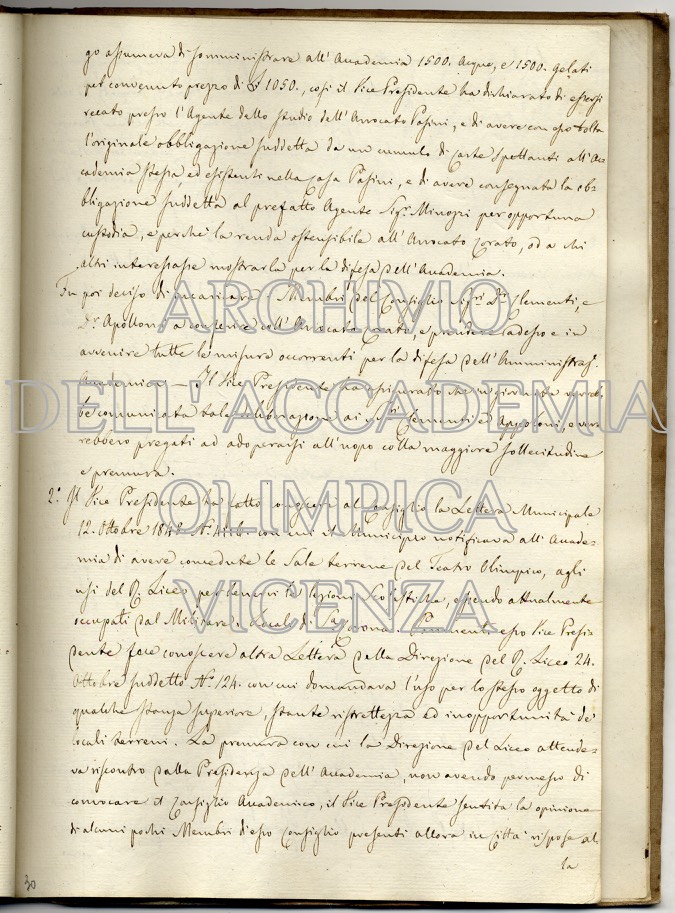 go assumeva di somministrare all' Accademia 1500. Acque, e 1500. gelati
pel convenuto prezzo di 1050., così il Vice Presidente ha dichiarato di essersi
recato presso l'Agente dello Studio dell' Avvocato Pasini, e di avere con esso tolta
l'originale obbligazione suddetta da un cumulo di Carte spettanti all' Ac-
cademia stessa ed esistenti nella casa Pasini, e di avere consegnata la ob-
bligazione suddetta al prefatto Agente Sigr. per opportuna
custodia, e perchè la renda ostensibile all' Avvocato , od a chi
altri interessasse mostrarla per la difesa dell' Accademia.
Fu poi deciso di incaricare i Membri del Consiglio Sigri. Dr. Clementi, e
Dr. Apolloni a conferire coll' Avvocato , e prendere adesso e in
avvenire tutte le misure occorrenti per la difesa dell' Amministraz.
Accademica — Il Vice Presidente ha che in giornata verreb-
be comunicata tale deliberazione ai Clementi ed Appoloni, e ver-
rebbero pregati ad adoperarsi all' uopo colla maggiore sollecitudine
e premura.
2.° Il Vice Presidente ha fatto conoscere al Consiglio la Lettera Municipale
12. Ottobre N.° con cui il Municipio notificava all' Accade-
mia di avere concedute le Sale terrene del Teatro Olimpico, agli
usi del R. Liceo per tenervi le lezioni scolastiche, essendo attualmente
occupati dal Militare i Locali di Sa. Corona. esso Vice Presi-
dente fece conoscere altra Lettera della Direzione del R. Liceo 24.
Ottobre suddetto N.° 124. con cui domandava l'uso per lo stesso oggetto di
qualche stanza superiore, stante ristrettezza ed inopportunità de'
locali terreni. La premura con cui la Direzione del Liceo attende-
va riscontro dalla Presidenza dell' Accademia, non avendo permesso di
convocare il Consiglio Accademico, il Vice Presidente sentita la opinione
di alcuni pochi Membri di esso Consiglio presenti allora in Città rispose al-
la
30
ARCHIVIO
DELL' ACCADEMIA
OLIMPICA
VICENZA